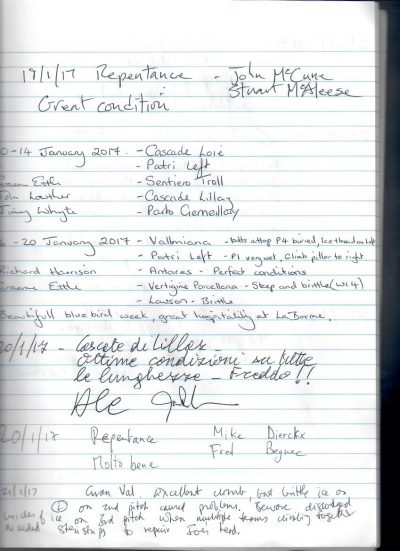 19/1/17 Repentance - John McCune
Stuart McAleese
Great condition
0-14 January 2017. - Cascade Loié
- Patri Left
Graeme Ettle - Sentiero Troll
John Lowther - Cascade Lillaz
Jimmy Whyte - Pacto
- 20 January 2017 - Vallmiana - bolts attop P4 buried, Ice thread on left
- Patri Left - P1 veg wet, climb pillar to right.
Richard Harrison - Antares - Perfect conditions.
Graeme Ettle - Vertigine Porcellana - Steep and brittle (WI 4)
- Lawson - Brittle
Beautifull blue bird week, great hospitality at La Barme.
20/1/17 - Cascate di Lillaz -
Ottime condizioni su tutte
le lunghezze - Freddo!!
Ale
20/1/17 Repentance Mike Dierckx
Fred
Molto bene
21/1/17 Gran Val. Excellent climb, but brittle ice on
on 2nd pitch caused problems. Beware dislodged
ice on 2nd pitch when multiple teams climbing together
steristrips to repair Joes head.